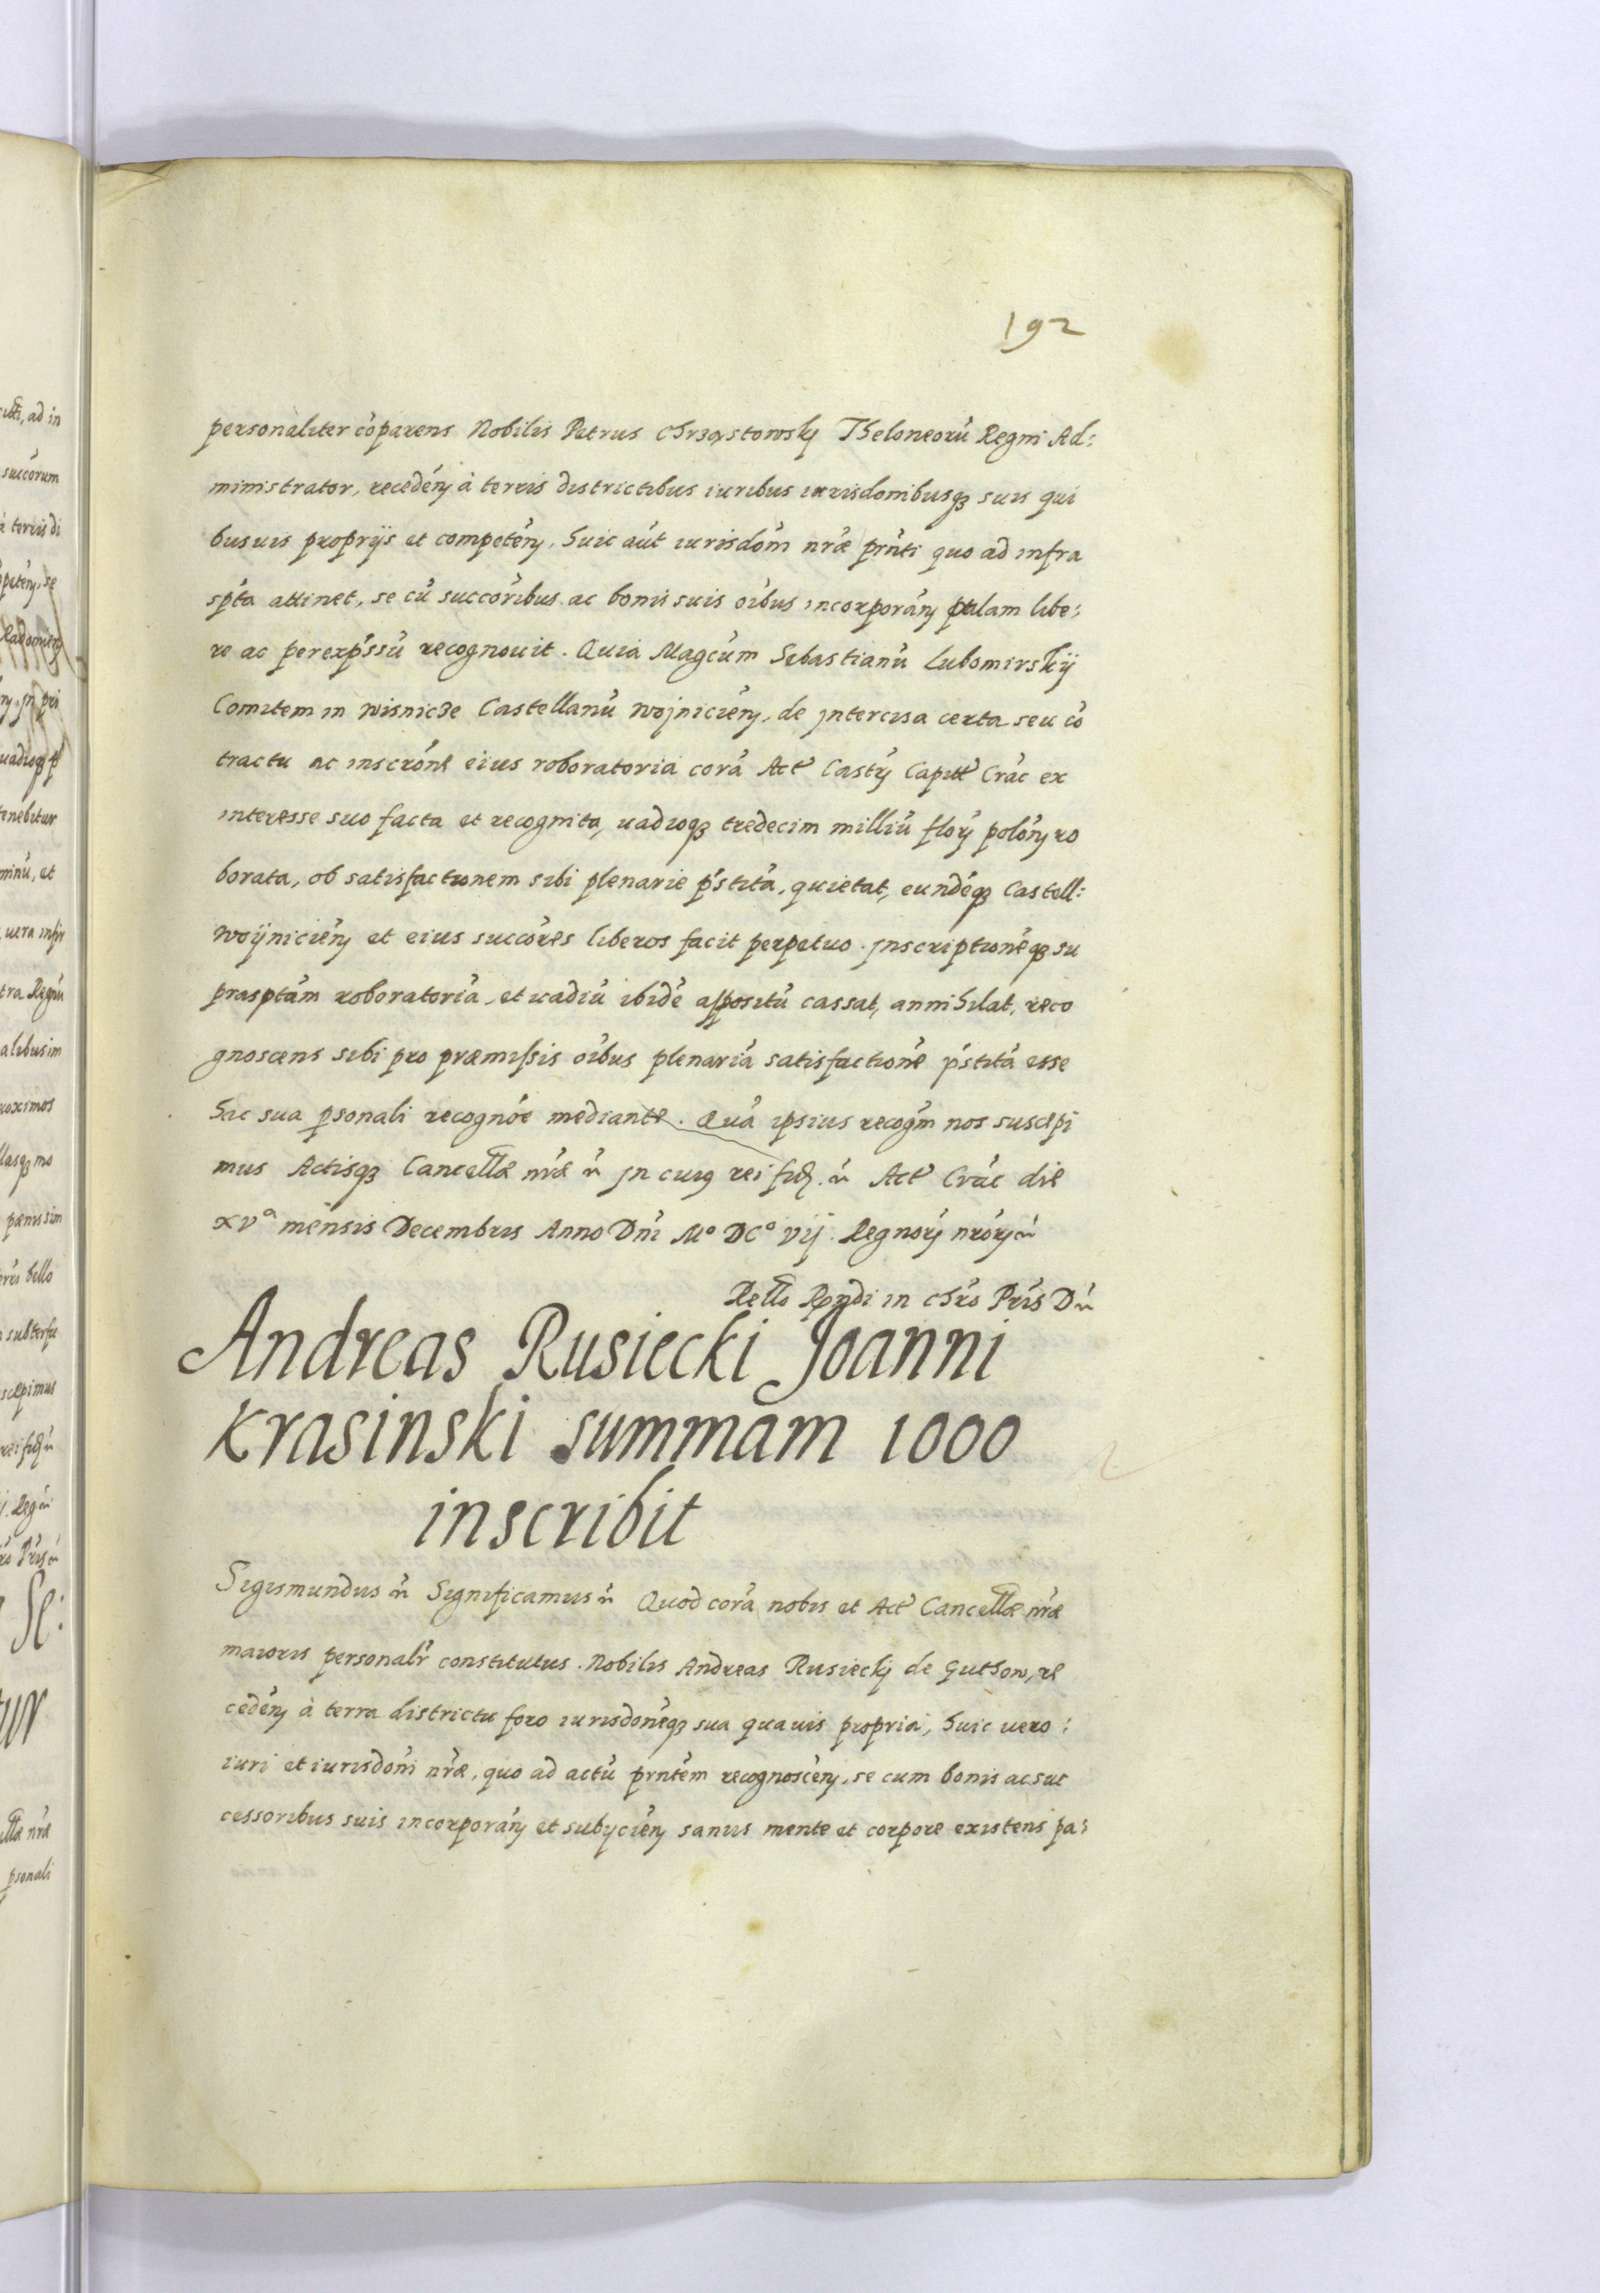 192
personaliter cõparens Nobilis Petrus Chrząstowsky Theloneorũ Regni Ad:
ministrator, recedẽń à terris districtibus iuribus iurisdonibusqȝ suis qui
busuis proprijs et competẽń, huic aũt iurisdoñi nr̃æ pñti quo ad infra
spta attinet, se cũ succoribus ac bonis suis oĩbus incorporãń palam libe:
re ac per expssũ recognouit. Quia Magcum Sebastianũ Lubomirskij
Comitem in Wisnicze Castellanũ Wojnicień, de jntercisa certa seu cõ
tractu ac inscrõne eius roboratoria corã Act Castr Capitt Crac ex
interesse suo facta et recognita, uadioqȝ tredecim milliũ flor polon ro
borata, ob satisfactionem sibi plenarie pstitã, quietat, eundẽqȝ Castell:
Woijnicień et eius succores liberos facit perpetuo. jnscriptionẽqȝ su
prasptam roboratoriã, et uadiũ ibidẽ appositũ cassat, annihilat, reco
gnoscens sibi pro præmissis oĩbus plenariã satisfactionẽ pstitã esse
hac sua psonali recognõe mediante. Quã ipsius recogm nos suscepi
mus Actisqȝ Cancellæ nr̃æ &c jn cuiq rei fid. &c Act Crac die
XVª mensis Decembris Anno Dñi Mº DCº vij. Regnor nror &c
Rello Rñdi in Chro Pris D &c
Andreas Rusiecki Joanni
Krasinski summam 1000
inscribit
Sigismundus &c Significamus &c Quod corã nobis et Act Cancellæ nr̃æ
maioris personalr constitutus Nobilis Andreas Rusiecky de Guthow, re
cedẽń à terra districtu foro iurisdonẽqȝ sua quauis propria, huic uero:
iuri et iurisdoñi nr̃æ, quo ad actũ prntem recognoscẽń, se cum bonis ac suc
cessoribus suis incorporãń et subycień sanus mente et corpore existens pa: